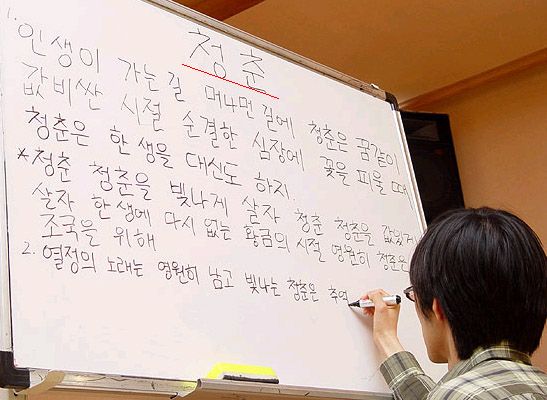 청춘
1. 인생이 가는 길 머나먼 길에 청춘은 꿈같이
값비싼 시절 순결한 심장에 꽃을 피울 때
청춘은 한생을 대신도 하지.
*청춘 청춘을 빛나게 살자 청춘 청춘을 값있게
살자 한생에 다시 없는 황금의 시절 영원히 청춘은
조국을 위해
2. 열정의 노래는 영원히 남고 빛나는 청춘은 추억